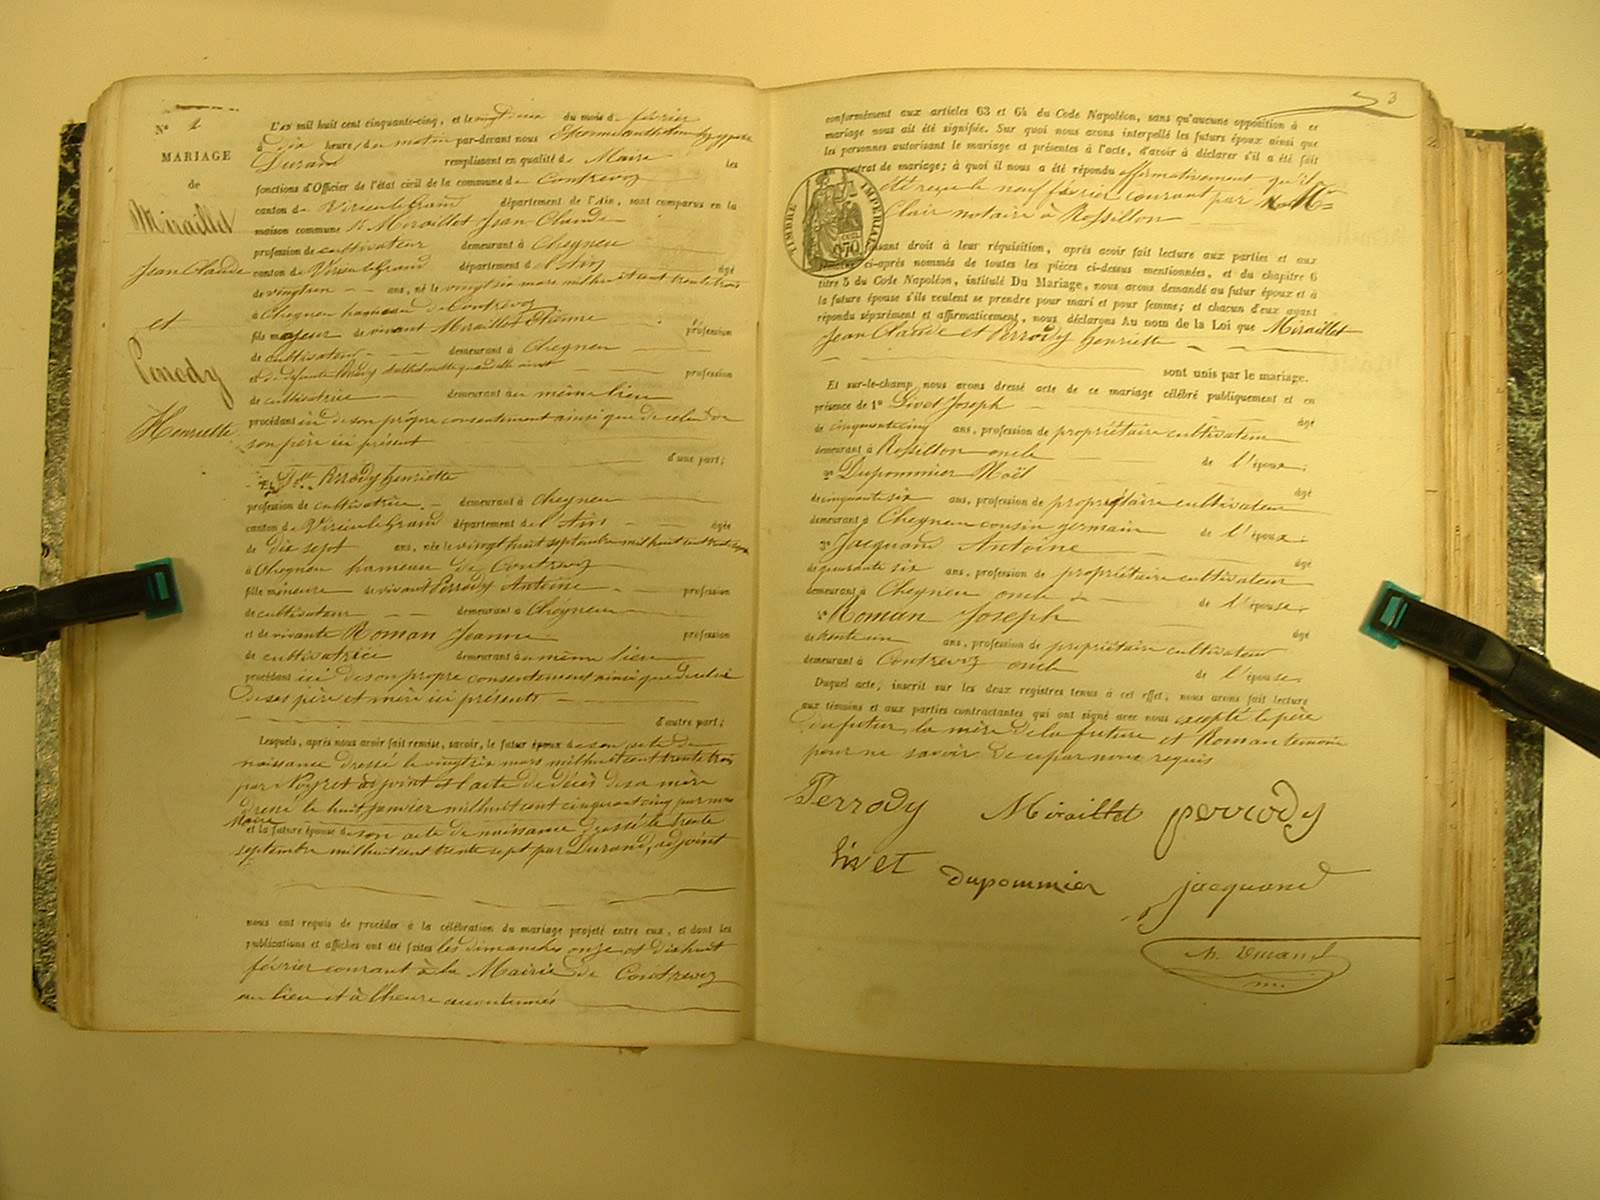 N° 2
MARIAGE
de
Miraillet
Jean Claude
et
Perrody
Henriette
L'an mil huit cent cinquante-cinq, et le vingt deux du mois de février
à dix heures du matin par-devant nous
Durand remplissant en qualité de Maire les
fonctions d'Officier de l'état civil de la commune de Contrevoz
canton de Virieu le Grand département de l'Ain, sont comparus en la
maison commune 1° Miraillet Jean Claude
profession de cultivateur demeurant à Cheyneu
canton de Virieu le Grand département de l'Ain âgé
de vingt un ans, né le vingt six mars mil huit cent trente trois
à Cheyneu hameau de Contrevoz
fils majeur de vivant Miraillet Etienne profession
de cultivateur demeurant à Cheyneu
et de défunte profession
de cultivatrice demeurant au même lieu
procédant ici de son propre consentement ainsi que de celui de
son père ici présent
d'une part;
Et Dlle Perrody henriette
profession de cultivatrice demeurant à Cheyneu
canton de Virieu le Grand département de l'Ain âgée
de dix sept ans, née le vingt huit septembre mil huit cent trente sept
à Cheyneu hameau de Contrevoz
fille mineure de vivant Perrody Antoine profession
de cultivateur demeurant à Cheyneu
et de vivante Roman Jeanne profession
de cultivatrice demeurant au même lieu
procédant ici de son propre consentement ainsi que de celui
de ses père et mère ici présents
d'autre part;
Lesquels, après nous avoir fait remise, savoir, le futur époux de son acte de
naissance dressé le vingt six mars mil huit cent trente trois
par Noyret adjoint et l'acte de décès de sa mère
dressé le huit janvier mil huit cent cinquante cinq par nous
Maire
et la future épouse de son acte de naissance dressé le trente
septembre mil huit cent trente sept par Durand, adjoint
nous ont requis de procéder à la célébration du mariage projeté entre eux, et dont les
publications et affiches ont été faites les dimanches onze et dix huit
février courant à la Mairie de Contrevoz
au lieu et à l'heure accoutumés
3
conformément aux articles 63 et 64 du Code Napoléon, sans qu'aucune opposition à ce
mariage nous ait été signifiée. Sur quoi nous avons interpellé les futurs époux ainsi que
les personnes autorisant le mariage et présentes à l'acte, d'avoir à déclarer s'il a été fait
un contrat de mariage; à quoi il nous a été répondu affirmativement qu'il a
été reçu le neuf février courant par Me
Clair notaire à Rossillon
TIMBRE IMPÉRIAL
70
Faisant droit à leur réquisition, après avoir fait lecture aux parties et aux
témoins ci-après nommés de toutes les pièces ci-dessus mentionnées, et du chapitre 6
titre 5 du Code Napoléon, intitulé Du Mariage, nous avons demandé au futur époux et à
la future épouse s'ils veulent se prendre pour mari et pour femme; et chacun d'eux ayant
répondu séparément et affirmativement, nous déclarons Au nom de la Loi que Miraillet
Jean Claude et Perrody henriette
sont unis par le mariage.
Et sur-le-champ nous avons dressé acte de ce mariage célébré publiquement et en
présence de 1° Livet Joseph âgé
de cinquante cinq ans, profession de propriétaire cultivateur
demeurant à Rossillon oncle de l'époux;
2° Dupommier Noël âgé
de cinquante six ans, profession de propriétaire cultivateur
demeurant à Cheyneu cousin germain de l'époux;
3° Jacquand Antoine âgé
de quarante six ans, profession de propriétaire cultivateur
demeurant à Cheyneu oncle de l'épouse;
4° Roman Joseph âgé
de trente un ans, profession de propriétaire cultivateur
demeurant à Contrevoz oncle de l'épouse;
Duquel acte, inscrit sur les deux registres tenus à cet effet, nous avons fait lecture
aux témoins et aux parties contractantes qui ont signé avec nous excepté le père
du futur, la mère de la future et Roman témoin
pour ne savoir de ce par nous requis
Perrody Miraillet perrody
livet dupommier jacquand
h. Durand